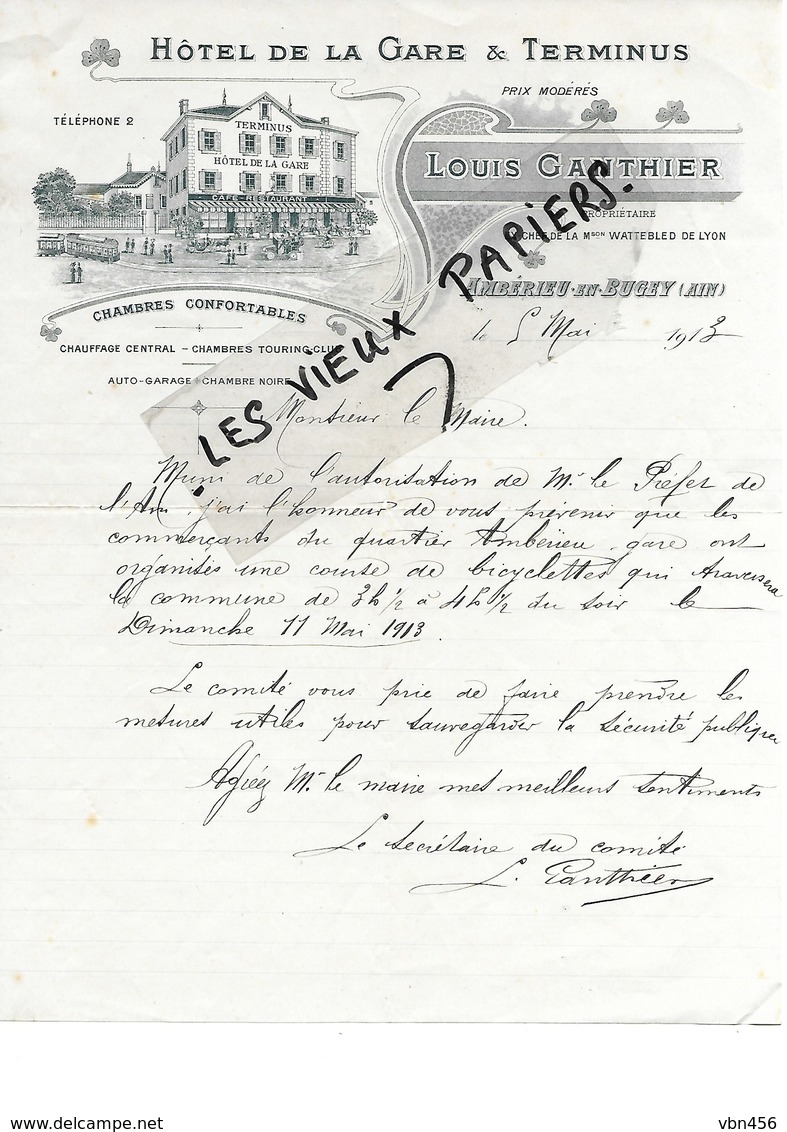 HÔTEL DE LA GARE & TERMINUS
PRIX MODÉRÉS
TÉLÉPHONE 2
TERMINUS
HÔTEL DE LA GARE
CAFÉ-RESTAURANT
LOUIS GANTHIER
PROPRIETAIRE
EX-CHEF DE LA MSON WATTEBLED DE LYON
AMBÉRIEU-EN-BUGEY (AIN)
CHAMBRES CONFORTABLES
CHAUFFAGE CENTRAL – CHAMBRES TOURING-CLUB
AUTO-GARAGE CHAMBRE NOIRE
LES VIEUX PAPIERS.
le 5 Mai 1913
Monsieur le Maire.
Muni de l'autorisation de Mr le Préfet de
l'Ain, j'ai l'honneur de vous prévenir que les
commerçants du quartier Ambérieu gare ont
organisés une course de bicyclettes qui traversera
la commune de 3h 1/2 à 4h 1/2 du soir le
Dimanche 11 Mai 1913.
Le comité vous prie de faire prendre les
mesures utiles pour sauvegarder la sécurité publique
Agréez Mr le maire mes meilleurs sentiments
Le secrétaire du comité
L. Ganthier
vbn456
delcampe.net